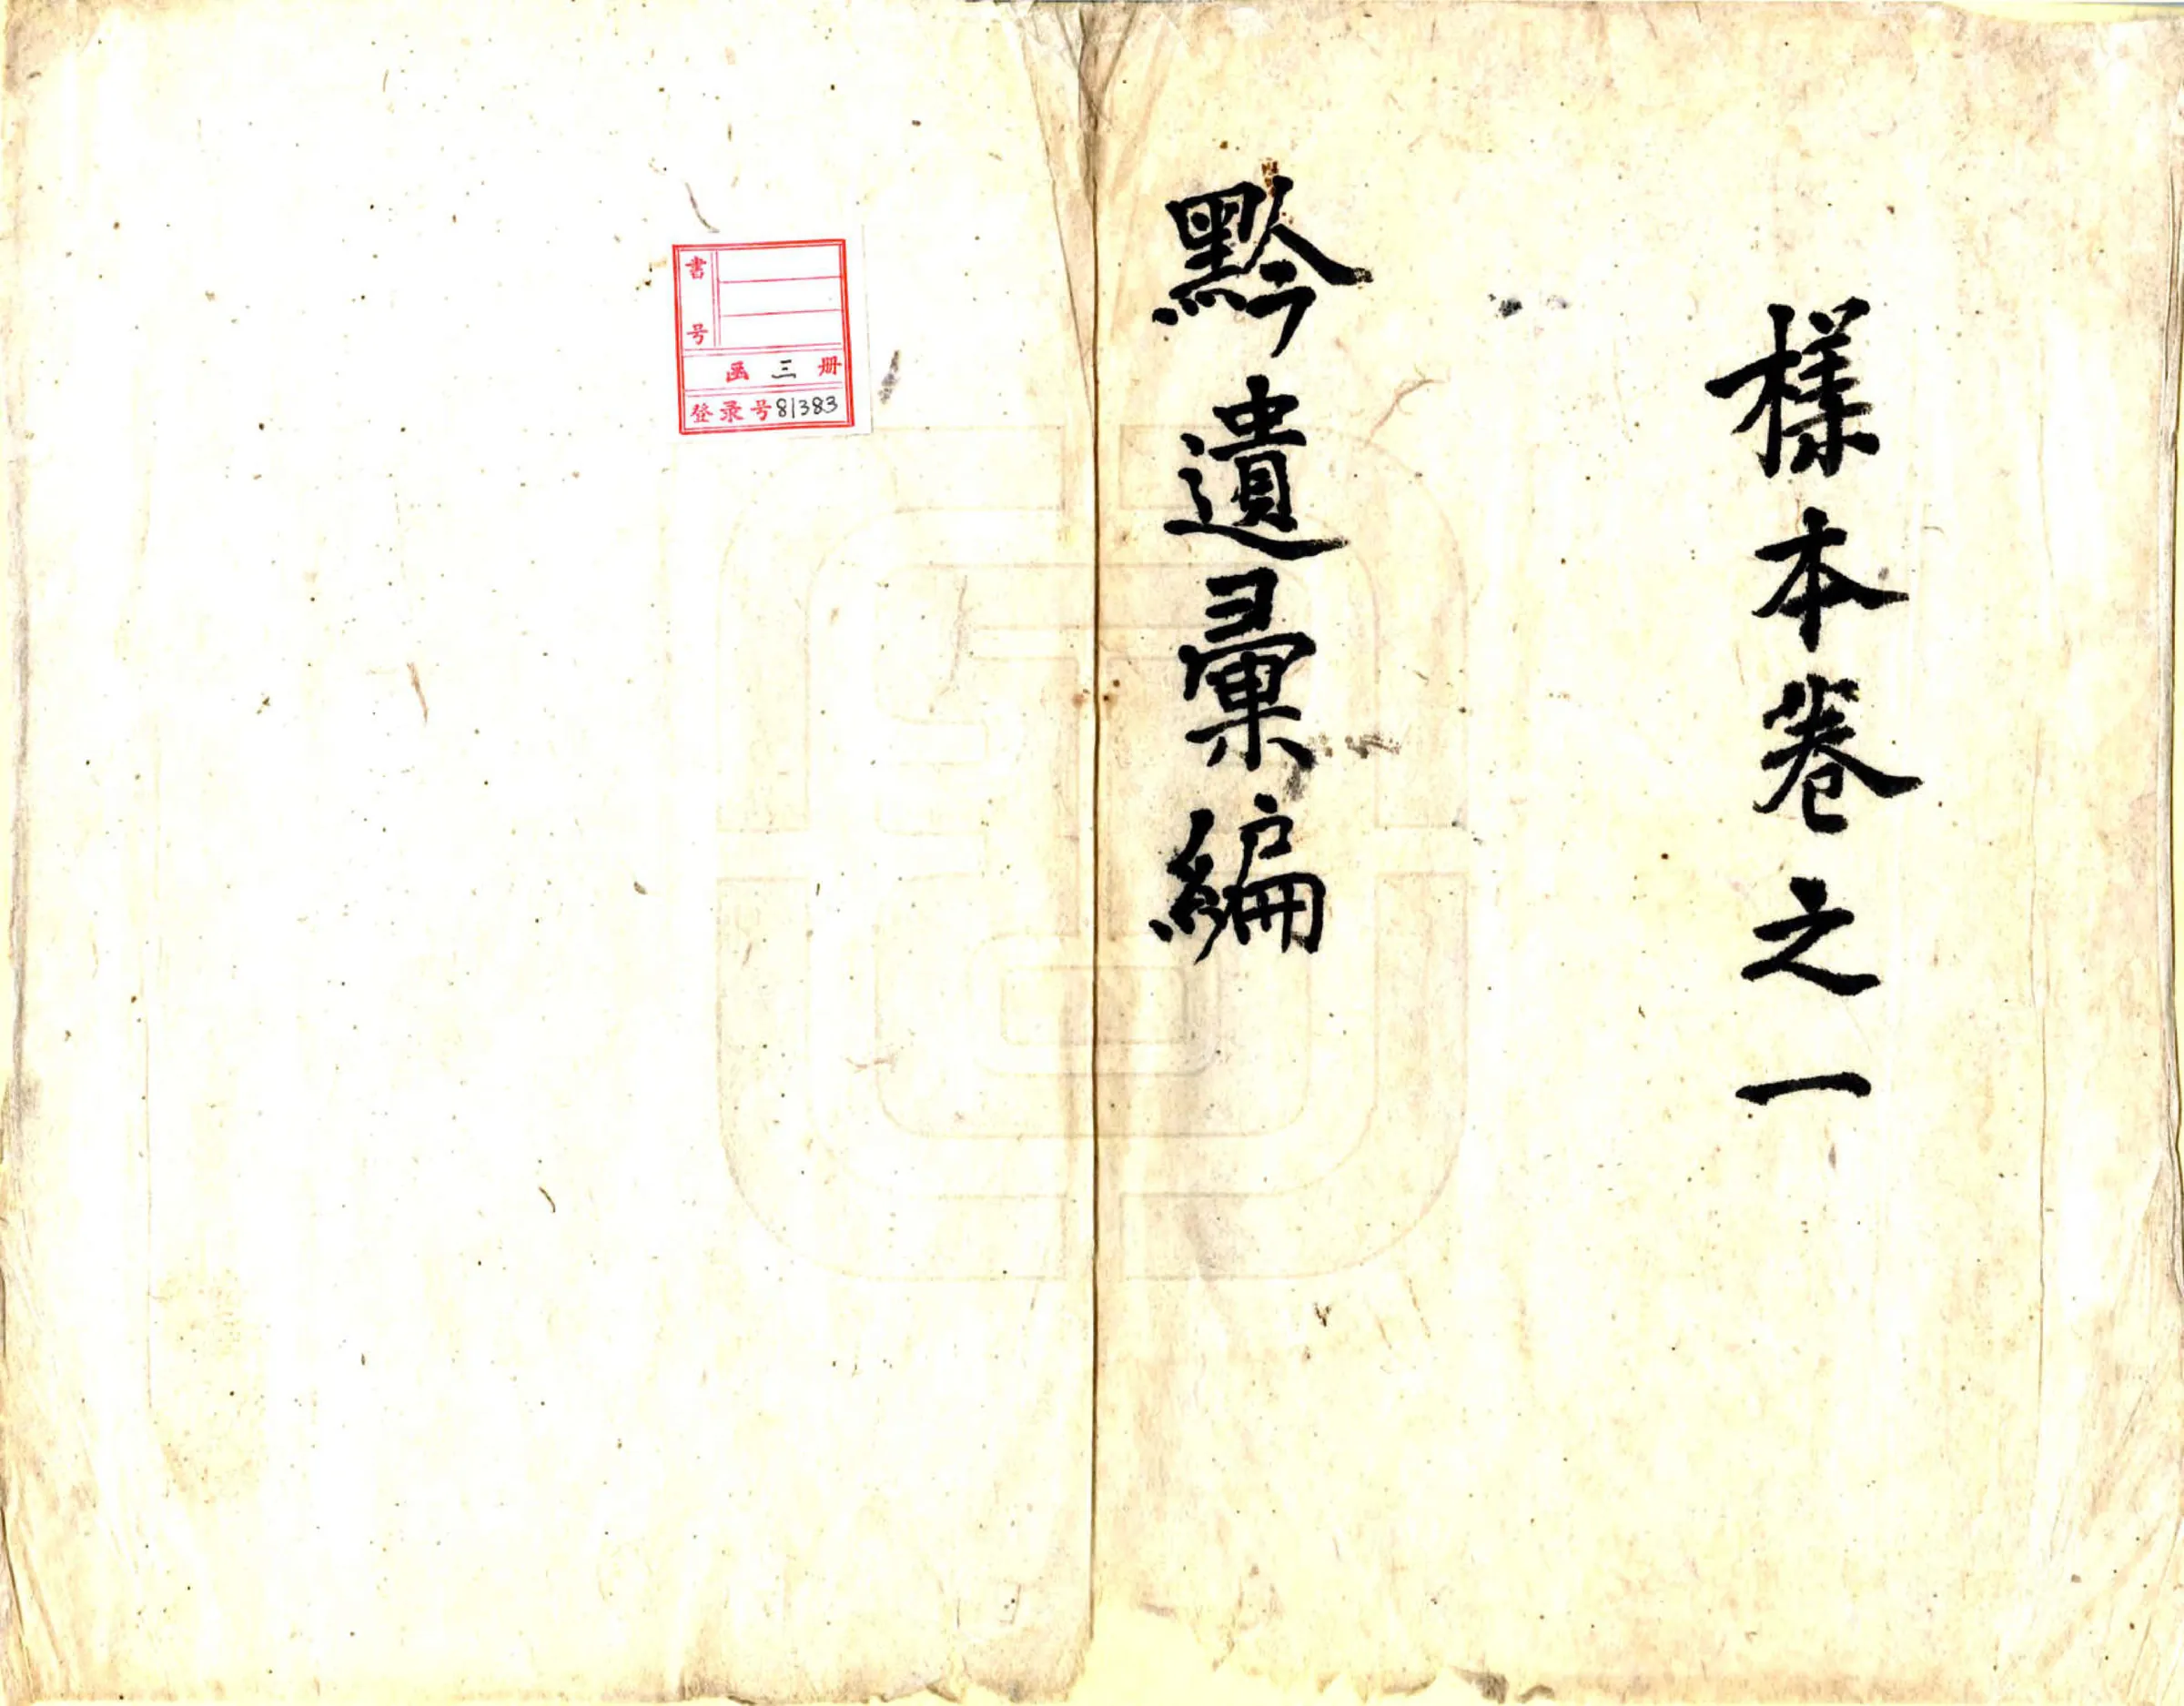 樣本卷之一
黔遺彙編
書号
函 三 册
登录号81383